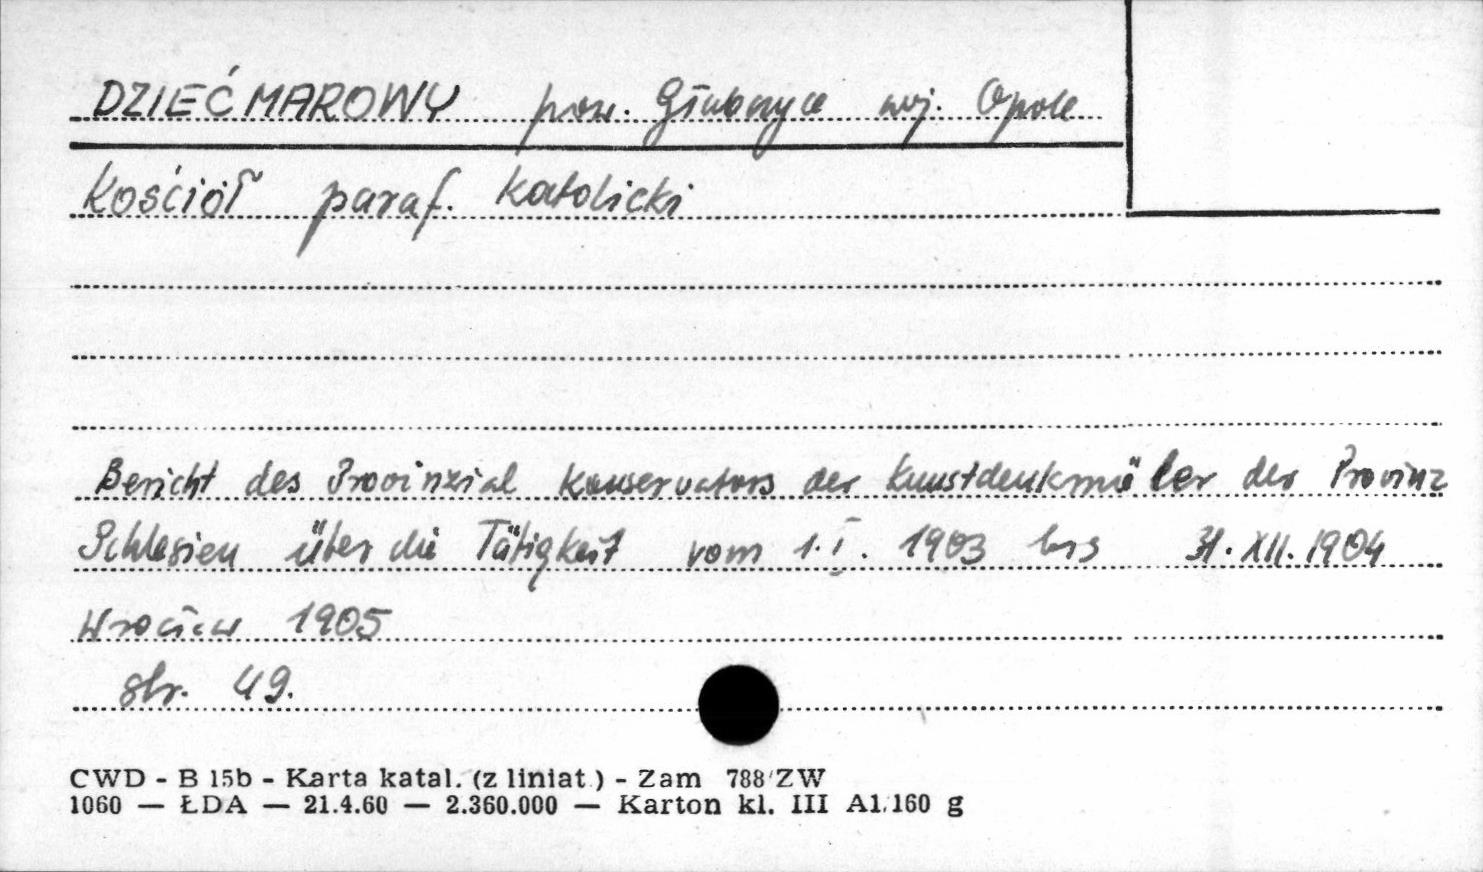 DZIEĆMAROWY pow. Głubczyce woj. Opole
Kościół paraf. katolicki
Bericht des Provinzial konservators der Kunstdenkmäler der Provinz
Schlesien über die Tätigkeit vom 1.I. 1903 bis 31.XII.1904
Wrocław 1905
str. 49.
CWD - B 15b - Karta katal. (z liniat.) - Zam 788/ZW
1060 — ŁDA — 21.4.60 — 2.360.000 — Karton kl. III A1/160 g